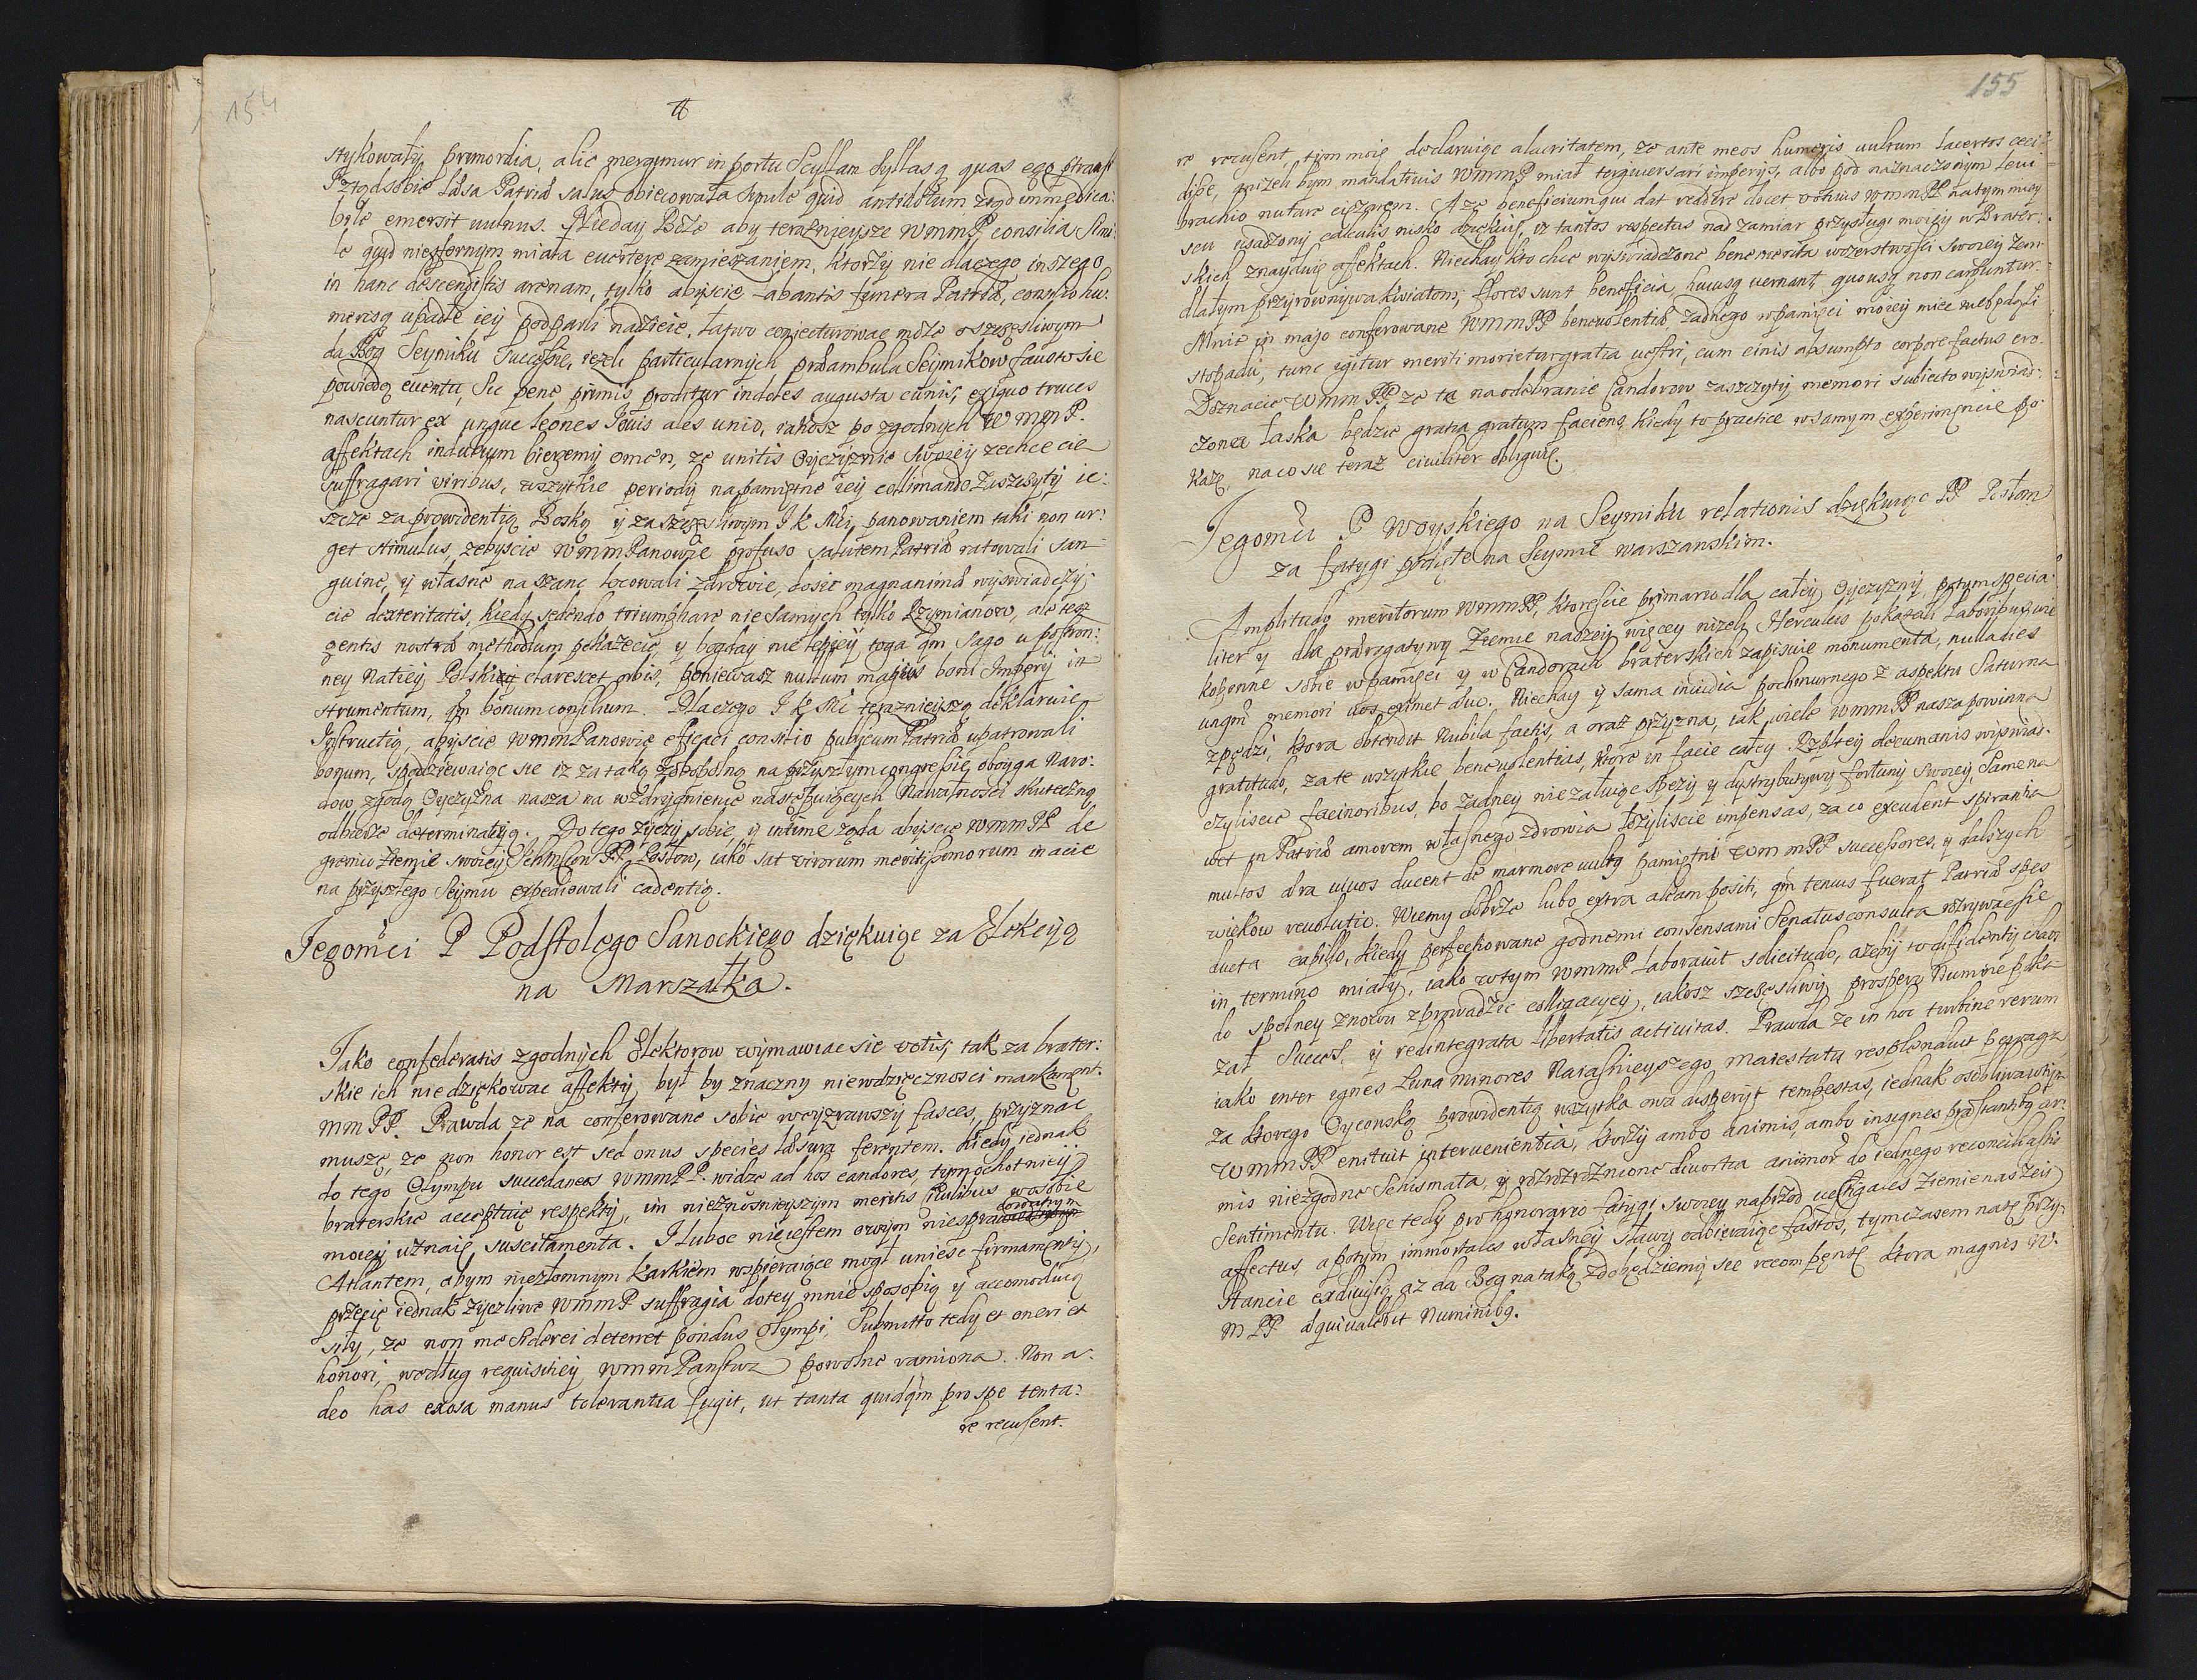 154
stykowały primordia, alic mergimur in portu Scyllam Syllasq quas ego
Ztądsobie læsa Patriæ salus obiecowała simile quid antidotum zkąd immedica:
bile emersit vulnus. Nieday Boże aby teraznieysze WmmP consilia simi
le quid niesfornym miała evertere zamieszaniem, ktorzy nie dlaczego inszego
in hanc descendistis arenam, tylko abyscie labantis funera Patriæ, consilio hu:
merisq upadłe iey podparli nadzieie. Łatwo conjecturowac może oszczęsliwym
da Bog Seymiku successie, iezeli particularnych præambula Seymikow fausto sie
powiodą eventu, Sic pene primis proditur indoles augusta cunis, exiquo truces
nascuntur ex ungue leones Iovis ales unio, iakosz po zgodnych WmmP.
affektach indutym bierzemy omen, ze unitis Oyczyznie swoiey zechcecie
suffragari viribus, wszystkie periody napamiętne iey collimando Zaszczyty ie:
szcze zaprowidentią Boską y zaszczęsliwym I K Mci panowaniem taki non ur:
get stimulus, zebyscie WmmPanowie profuso salutem Patriæ ratowali san
guine, y własne naszanc locowali zdrowie, dosic magnanimæ wyswiadczy:
cie dexteritatis, kiedy sedendo triumphare nie samych tylko Rzymianow, ale tesz
gentis nostræ methodum pokażecie, y bogday nie lepiey toga qm sago u postron:
ney Natiey Polskiey clarescet orbis, poniewasz nullum maius boni Imperij in
strumentum, qm bonum consilium. Dlaczego I K Mc teraznieyszą deklaruie
Instructią, abyscie WmmPanowie eficaci consilio publicum Patriæ upatrowali
bonum, spodziewaiąc sie iz zataką na przyszłym congressie oboyga Naro:
dow zgodą Oyczyzna nasza na wzdrygnienie następuiących Nawałnosci skuteczną
odbierze determinatiją. Dotego życzy sobie, y intime ząda abyscie WmmPP de
gremio Ziemie swoiey PP Posłow, iako sat virorum meritissimorum in acie
na przyszłego Seymu expediowali cadentią.
Jegomci P Podstolego Sanockiego dziękuiąc za Elekcyą
na Marszałka.
Jako confederatis zgodnych Elektorow wymawiac sie votis, tak za brater:
skie ich nie dziękowac affekty, był by znaczny niewdzięcznosci mankament.
mm PP. Prawda ze na conferowane sobie weyzrawszy fasces, przyznac
muszę, ze non honor est sed onus species læsura ferentem. Kiedy iednak
do tego Olympu succedaneos WmmPP. widzę ad hos candores, tym ochotniey
braterskie acceptuię respekty, im nieznosnieyszym meritis wosobie
moiey uznaię suscitamenta. I luboc nie iestem owym niespracowanym
Atlantem, abym niezłomnym karkiem wspieraiące mogł uniesc firmamenty,
przecię iednak życzliwe WmmP suffragia dotey mnie sposobią y accomoduią
siły, ze non me siderei deterret pondus Olympi, Submitto tedy et oneri et
honori, według requisitiey WmmPanstwa powolne ramiona. Non a:
deo has exosa manus tolerantia fugit, ut tanta quidqm pro spe tenta:
re recusent.
155
re recusent, tym moię declaruiąc alacritatem, ze ante meos humeris vultum lacertos ceci:
disse, nizeli bym mandativis WmmP miał tergiversari imperijs, albo pod naznaczonym levi
brachio nutare ciężarem. A ze beneficium qui dat reddere docet votivis WmmPP natym mieyscu
usadzony calculis nisko dziękuię, iz tantos respectus nad zamiar przysługi moiey w Brater:
skich znayduię affektach. Niechay kto chce wyswiadczone bene merita wczerstwosci swoiey Zem
dlałym przyrownywa kwiatom, flores sunt beneficia, hucusq vernant, quousq non carpuntur.
Mnie in majo conferowane WmmPP benevolentiæ, zadnego wpamięci moiey niee
stopadu, tunc igitur meriti morietur gratia vestri, cum cinis absumpto corpore factus ero.
Doznacie WmmPP, ze ta naodebranie Candorow zaszczyty memori subiecto wyswiad:
czona łaska będzie gratia gratum faciens, kiedy to practice wsamym experimencie po
każę, naco się teraz civiliter obliguię.
Jegomci P Woyskiego na Seymiku relationis dziękuiąc PP Posłom
za fatygi podięte na Seymie warszawskim.
Amplitudo meritorum WmmPP, ktoreście primario dla całey Oyczyzny, potym specia:
liter y dla prærogatywy Ziemie naszey więcey nizeli Herculis pokazali labori
kopenne sobie wpamięci y w Candorach braterskich zapisuie monumenta, nulla dies
unqm memori vos eximet ævo. Niechay y sama invidia pochmurnego z aspektu Saturna
zpędzi, ktora obtendit nubila factis, a oraz przyzna, iak wiele WmmPP nasza powinna
gratitudo, za te wszystkie benevolentias, ktore in facie całey Rzpltey documanis wyswiad:
czyliscie facinoribus, bo zadney nie załuiąc spezy y dystrybutywy fortuny swoiey, Same na
wet in Patriæ amorem własnego zdrowia łożyliscie impensas, za co excudent spirantia
multos æra vivos ducent de marmore vultq pamiętni WmmPP successores, y dalszych
wiekow revolutie. Wiemy dobrze lubo extra aleam positi, qm tenuis fuerat Patriæ spes
ducta capillo, kiedy perfectiowane godnemi consensami Senatusconsulta rozrywac sie
in termino miały, iako wtym WmmP laboravit solicitudo, azeby to disidentiy chaos
do spolney znowu zprowadzic colligacyey, iakosz szczęsliwy prospero Numine pokazał
Success, y redintegrata libertatis activitas. Prawda ze in hoc turbine rerum
iako inter ignes Luna minores Naiasnieyszego Maiestatu resplenduit powaga,
za ktorego Oycowską prowidentią wszystka owa disperijt tempestas, iednak osobliwa wtym
WmmPP enituit intervenientia, ktorzy ambo animis, ambo insignes præstantibq ar:
mis niezgodne Schismata, y rozroznione divortia animor do iednego reconciliastis
Sentimentu. Więc tedy pro honorario fatygi swoiey naprzod vectigales Ziemie naszeis
affectus, a potym immortales własney sławy odbieraiąc fastos, tymczasem nasz przy:
stancie exdivisiq az da Bog nataką zdobędziemy sie recompensę ktora magnis W.
m PP æquivalebit Numinibq.